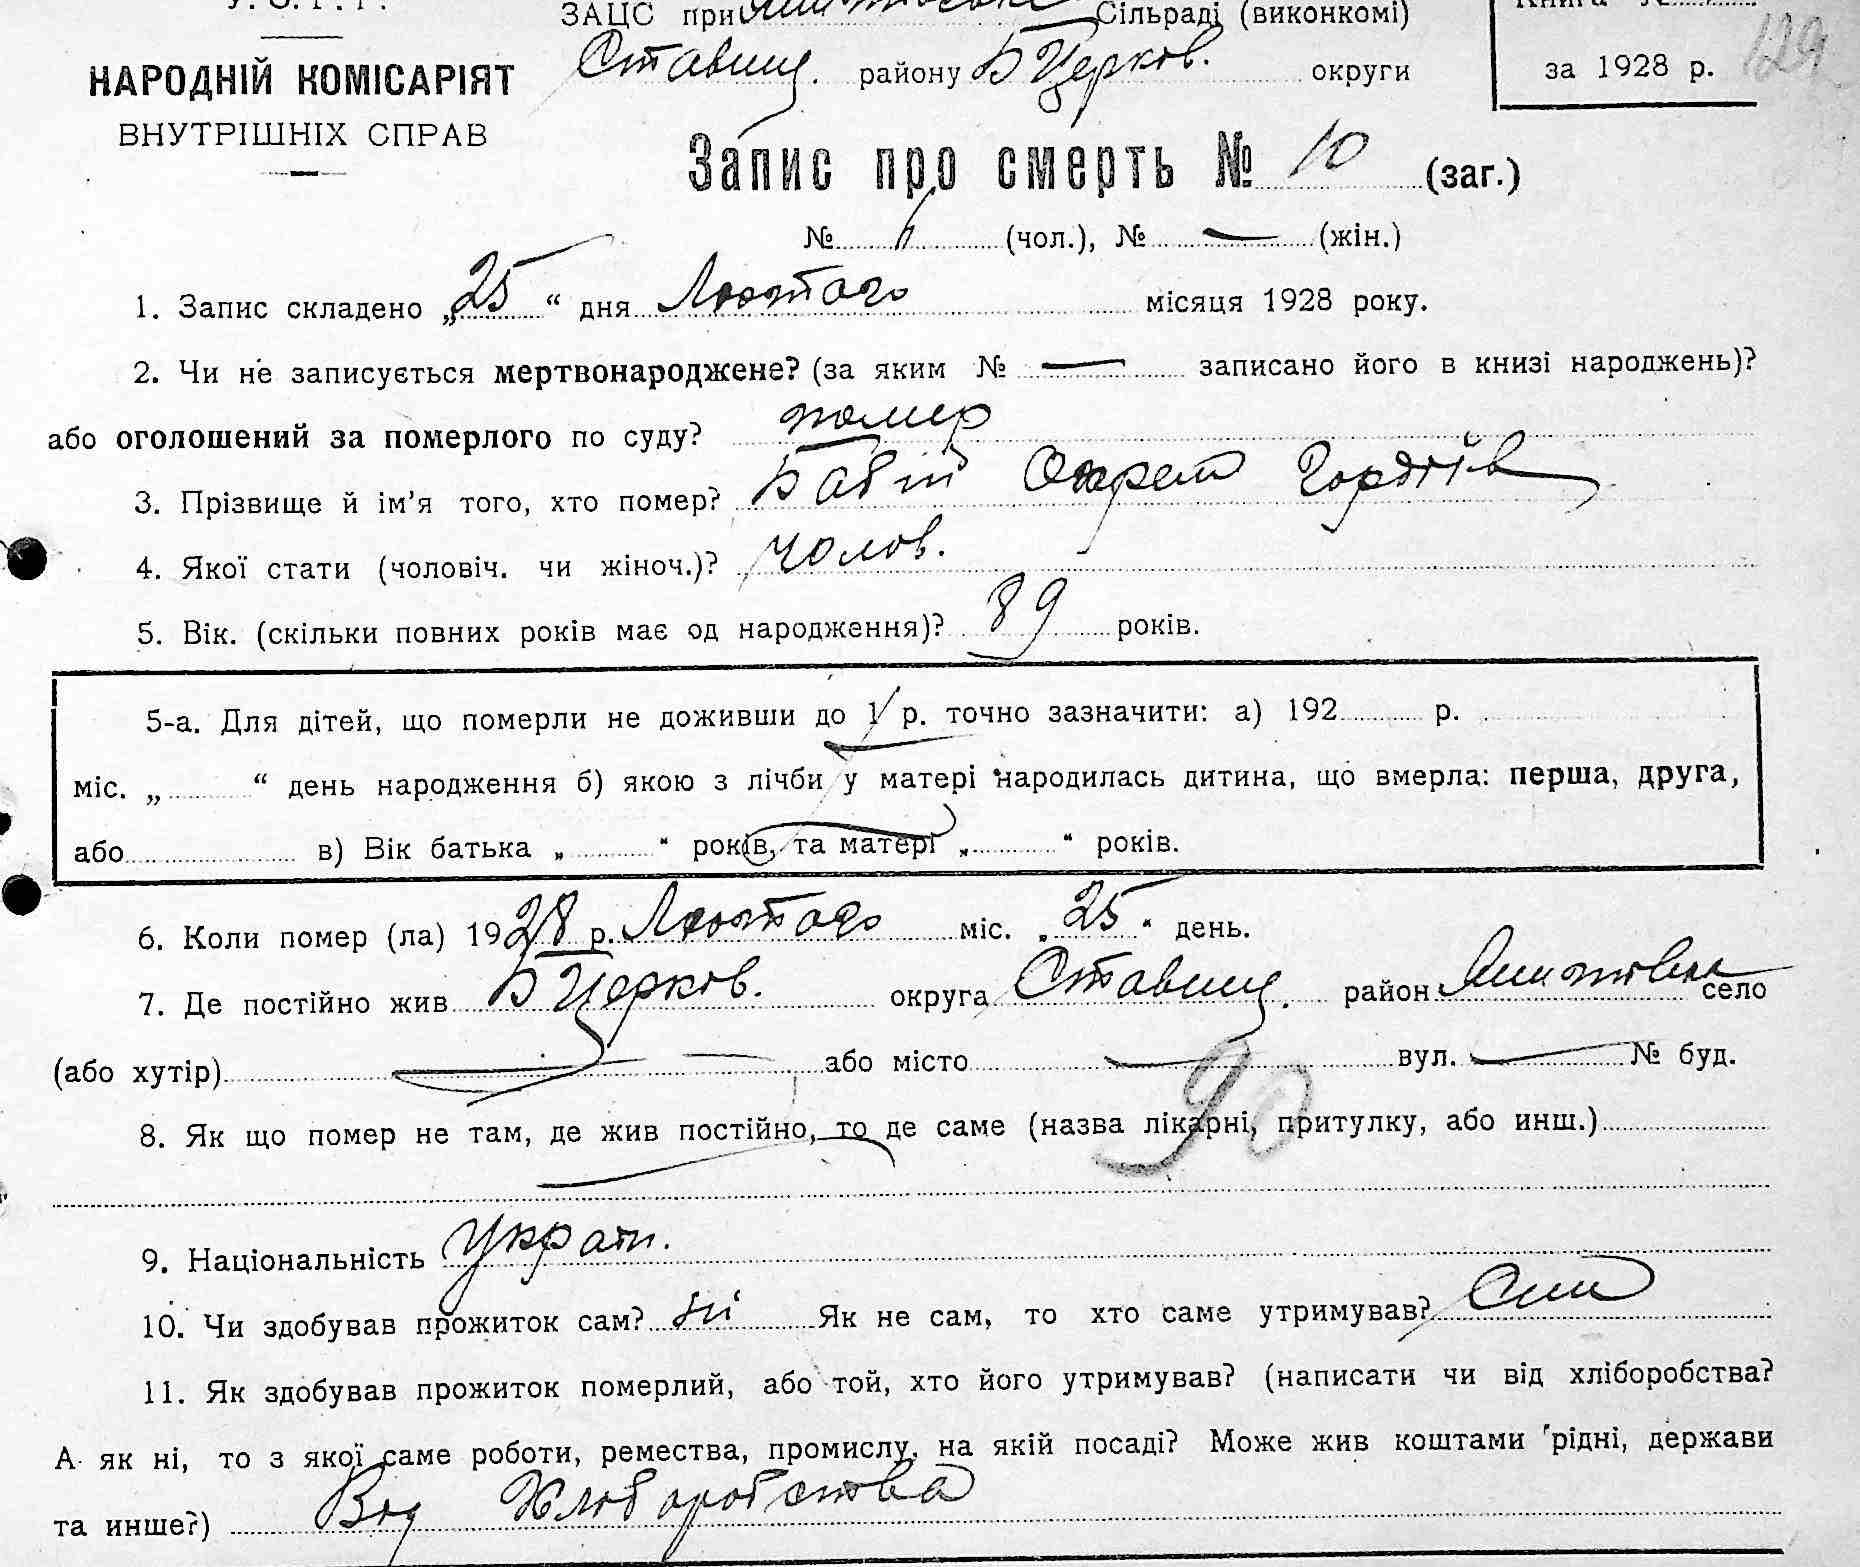 У. С. Р. Р.
ЗАЦС при Сільраді (виконкомі)
Ставищ. району Б Церков. округи
за 1928 р. 129
НАРОДНІЙ КОМІСАРІЯТ
ВНУТРІШНІХ СПРАВ
Запис про смерть № 10 (заг.)
№ (чол.), № — (жін.)
1. Запис складено „25“ дня Лютого місяця 1928 року.
2. Чи не записується мертвонароджене? (за яким № — записано його в книзі народжень)?
або оголошений за померлого по суду? помер
3. Прізвище й ім'я того, хто помер? Бабій Гордіїв
4. Якої стати (чоловіч. чи жіноч.)? чолов.
5. Вік. (скільки повних років має од народження)? 89 років.
5-а. Для дітей, що померли не доживши до 1 р. точно зазначити: а) 192 р.
міс. „ “ день народження б) якою з лічби у матері народилась дитина, що вмерла: перша, друга,
або в) Вік батька „ “ років, та матері „ “ років.
6. Коли помер (ла) 1928 р. Лютого міс. „25“ день.
7. Де постійно жив Б Церков. округа Ставищ. район село
(або хутір) — або місто — вул. — № буд.
90
8. Як що помер не там, де жив постійно, то де саме (назва лікарні, притулку, або инш.)
9. Національність Україн.
10. Чи здобував прожиток сам? ні Як не сам, то хто саме утримував? Син
11. Як здобував прожиток померлий, або той, хто його утримував? (написати чи від хліборобства?
А як ні, то з якої саме роботи, ремества, промислу, на якій посаді? Може жив коштами рідні, держави
та инше?) Від Хліборобства